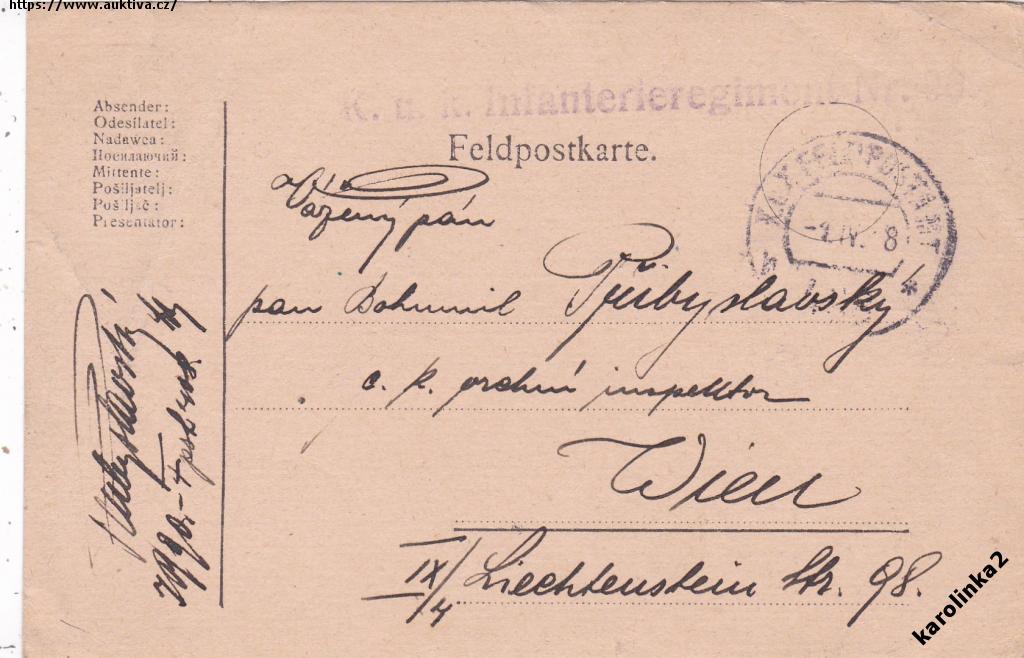 https://www.auktiva.cz/
K. u. k. Infanterieregiment Nr.
Feldpostkarte.
Absender:
Odesílatel:
Nadawca:
Посилаючий:
Mittente:
Pošiljatelj:
Pošiljač:
Presentator:
K.u.K. FELDPOSTAMT
IV. 8
Vážený pán
pan Bohumil Přibyslavský
c. k. vrchní inspektor
Wien
IX/4 Liechtenstein Str. 98.
karolinka2